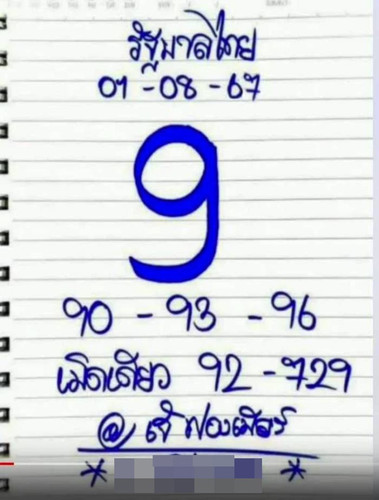 รัฐบาลไทย
01 - 08 - 67
9
90 - 93 - 96
เม็ดเดียว 92 - 729
@
* *